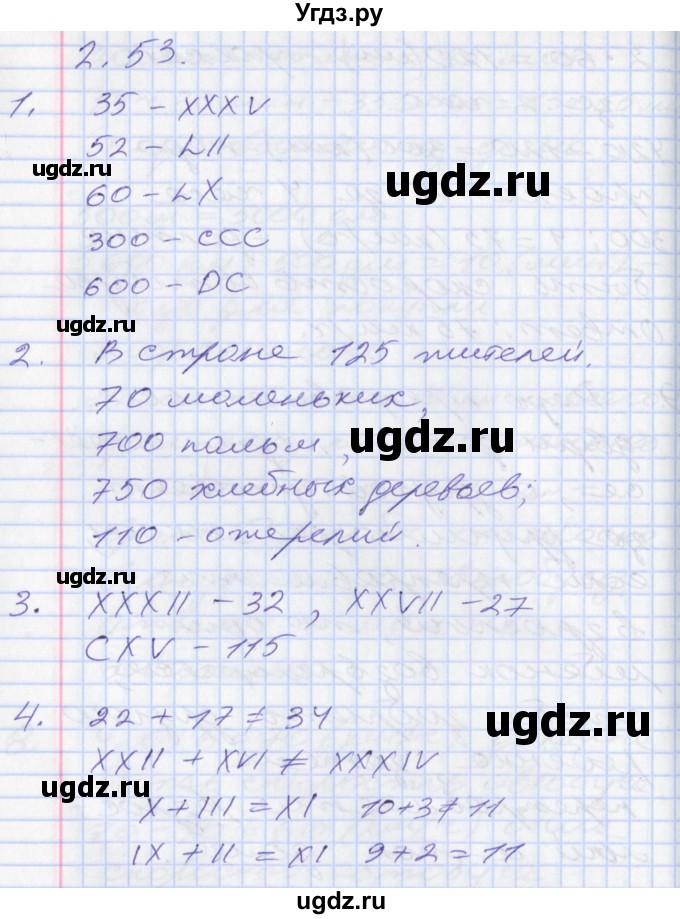 Угдз.ру
2.53.
1. 35 - XXXV
ugdz.ru
52 - LII
ugdz.ru
60 - LX
300 - CCC
600 - DC
ugdz.ru
2. В стране 125 жителей.
70 моленьких,
700 пальм,
ugdz.ru
750 хлебных деревьев;
110 - ожерелий.
ugdz.ru
3. XXXII - 32, XXVII - 27
CXV - 115
4. 22 + 17 ≠ 34
ugdz.ru
XXII + XVI ≠ XXXIV
ugdz.ru
X + III = XI 10+3≠11
IX + II = XI 9+2=11
ugdz.ru
Угдз.ру